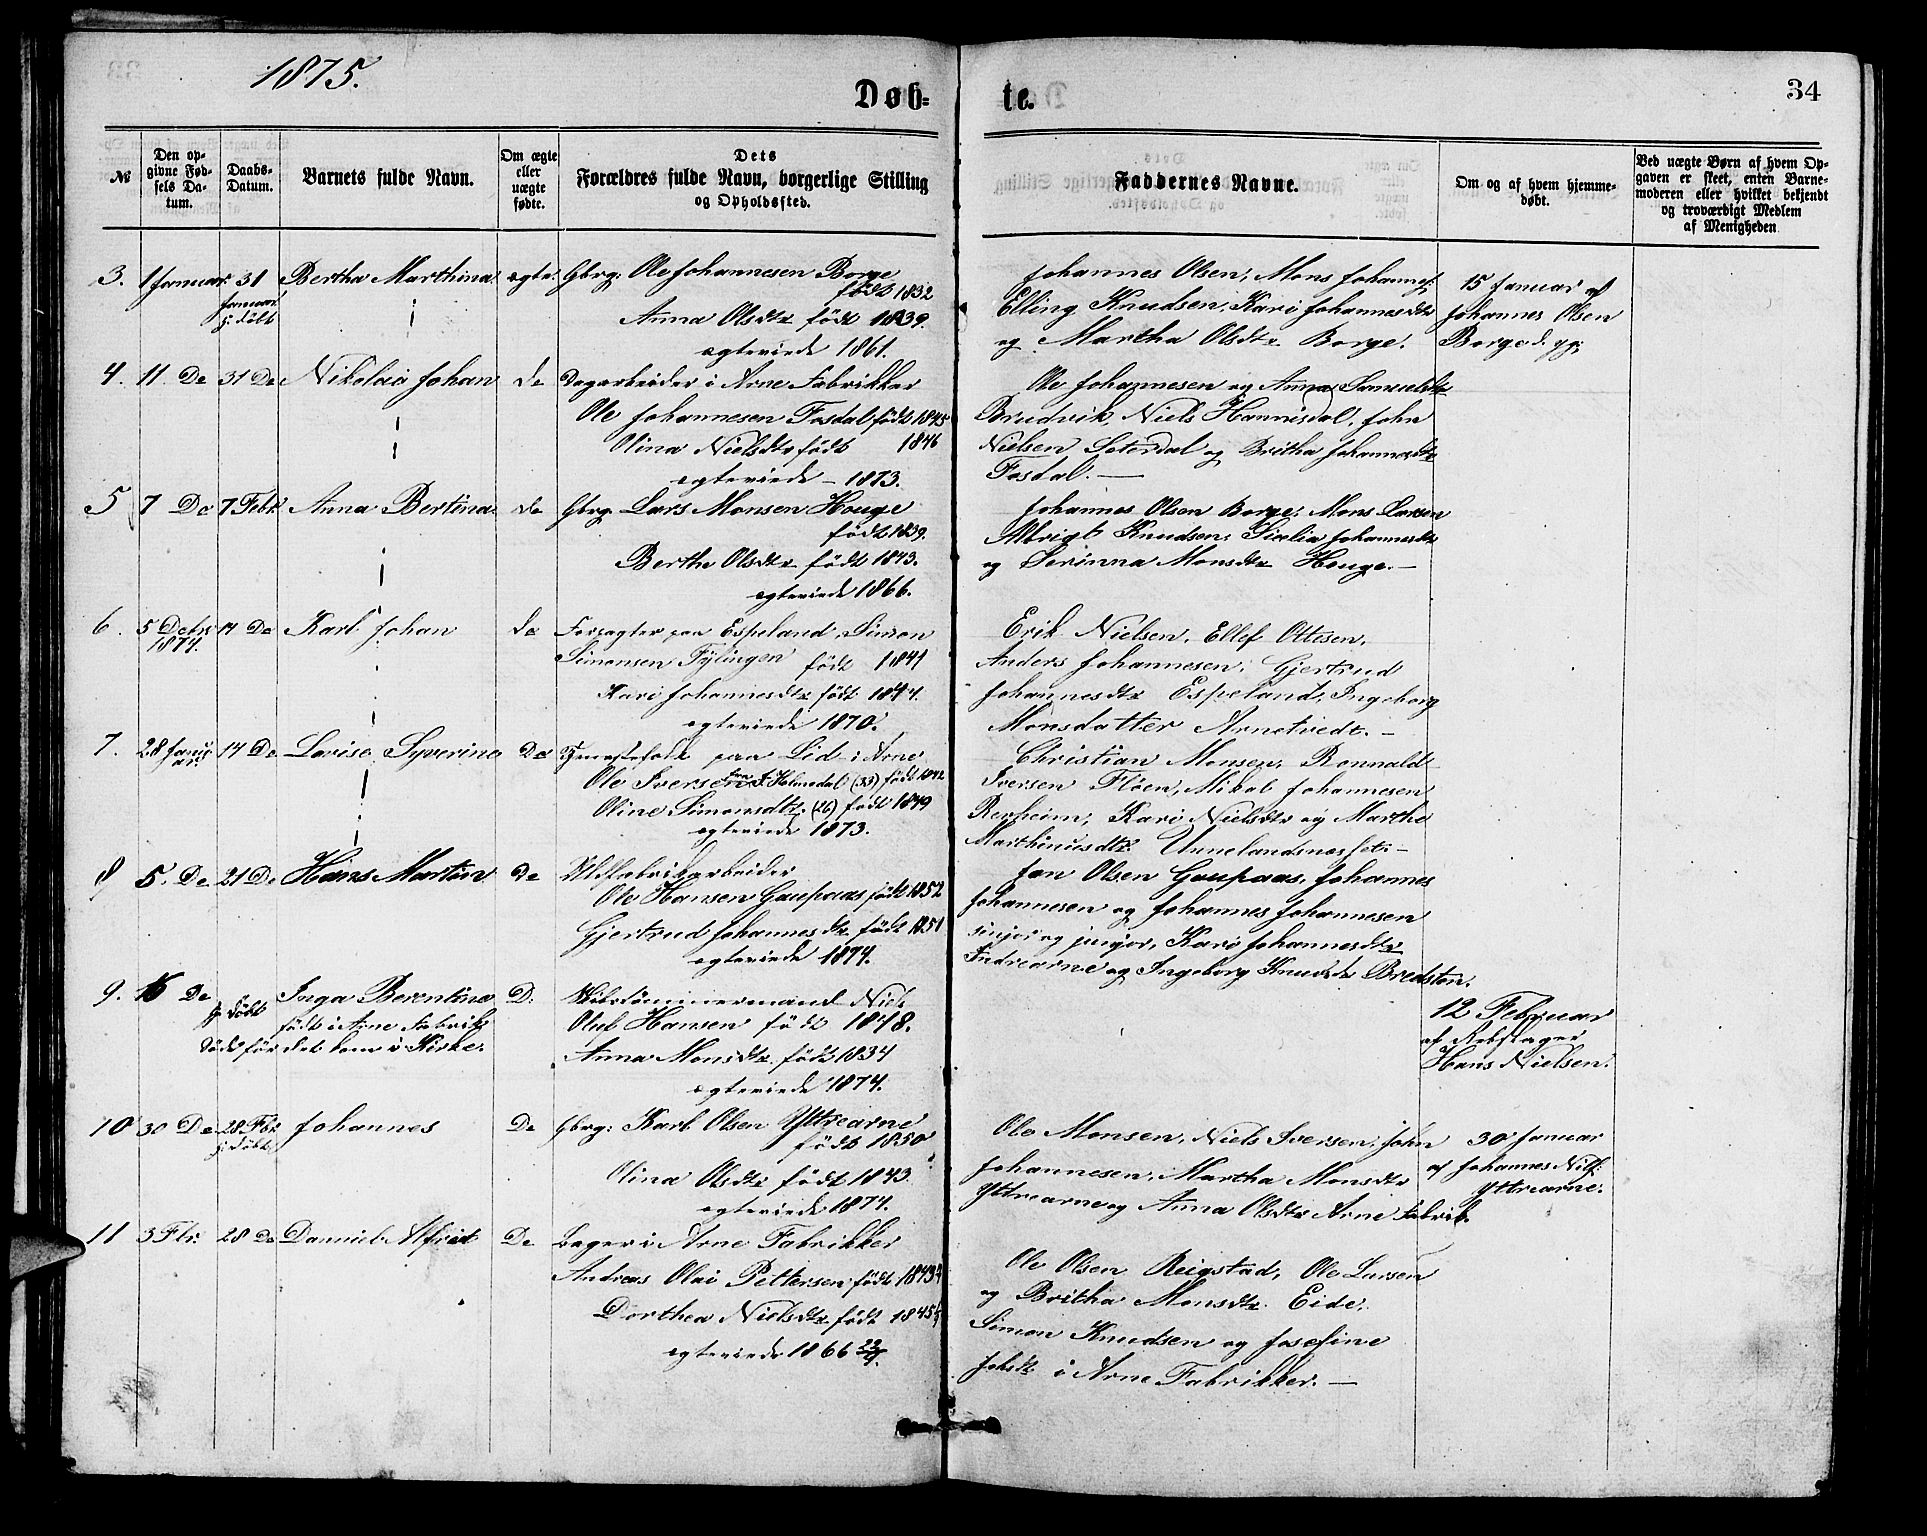 1875.
Døb=
te.
34
№
Den op-
givne Fød-
sels Da-
tum.
Daabs-
Datum.
Barnets fulde Navn.
Om ægte
eller
uægte
fødte.
Dets
Forældres fulde Navn, borgerlige Stilling
og Opholdssted.
Faddernes Navne.
Om og af hvem hjemme-
døbt.
Ved uægte Børn af hvem Op-
gaven er skeet, enten Barne-
moderen eller hvilket bekjendt
og troværdigt Medlem
af Menigheden
3. 1 Januar 31 Bertha Marthina ægte. Gbrg: Ole Johannesen Borge
Januar
hj. døbt
født 1832
Anna Olsdtr født 1839.
ægteviede 1861.
Johannes Olsen, Mons Johannes:
Elling Knudsen, Kari Johannesdtr
og Martha Olsdtr Borge.
15 Januar af
Johannes Olsen
Borge
4. 11 Do 31 Do Nikolai Johan do Dagarbeider i Arne Fabrikker
Ole Johannesen Fosdal født 1845
Olina Nielsdtr født 1846
ægteviede – 1873.
Ole Johannesen og Anna Samuelsdtr
Brudvik, Niels Hannisdal, John
Nielsen Seterdal og Britha Johannesdtr
Fosdal. —
5 7 Do 7 Febr Anna Bertina do Gbrg. Lars Monsen Houge
født 1839.
Berthe Olsdtr født 1843.
ægteviede 1866.
Johannes Olsen Borge, Mons Larsen
Albrigt Knudsen, Sicelia Johannesdtr
og Serinna Monsdtr Houge. —
6. 5 Decbr 14 Do Karl Johan do Forpagter paa Espeland Simon
1874.
Simonsen Tylingen født 1841
Kari Johannesdtr født 1844.
ægteviede 1870.
Erik Nielsen, Ellef Ottesen,
Anders Johannesen, Gjertrud
Johannesdtr Espeland, Ingeborg
Monsdatter Arnetvedt. –
7. 28 Janu 14 Do Lovise Syverine Do Tjenestefolk paa Lid i Arne
ar.
Ole Iversen fra Holmedal (33) født 1842
Oline Simonsdtr. (26) født 1849
ægteviede 1873.
Christian Monsen, Ronnald
Iversen Fløen, Mikal Johannesen
Renheim, Kari Nielsdtr og Marthe
Marthinusdtr Unnelandsnesset. –
8 5. Do 21 Do Hans Martin do Uldfabrikarbeider
Ole Hansen Gaupaas født 1852
Gjertrud Johannesdtr født 1851
ægteviede 1874.
Jon Olsen Gaupaas, Johannes
Johannesen og Johannes Johannesen
sinjor og junjor, Kari Johannesdtr
Indrearne og Ingeborg Knudsdtr Bredsten.
9. 16 Do hj. døbt Inga Berentine D. Skibstømmermand Niels
født i Arne Fabrik
død før det kom i Kirke.
Oluf Hansen født 1848.
Anna Monsdtr født 1834
ægteviede 1874.
12 Februar
af Rebslager
Hans Nielsen.
10 30 Do 28 Fbr Johannes Do Gbrg: Karl Olsen Yttrearne
hj. døbt
født 1850
Olina Olsdtr født 1843
ægteviede 1874.
Ole Monsen, Niels Iversen, John
Johannesen, Martha Monsdtr
Yttrearne og Anna Olsdtr Arne Fabrik.
30 Januar
af Johannes Nils:
Yttrearne.
11 3 Fbr. 28 Do Danniel Alfred Do Bager i Arne Fabrikker
Andreas Olai Pettersen født 1843
Dorthea Nielsdtr født 1845
ægteviede 1866
Ole Olsen Reigstad, Ole Larsen
og Britha Monsdtr. Eide,
Simon Knudsen og Josefine
Johsdtr i Arne Fabrikker. —